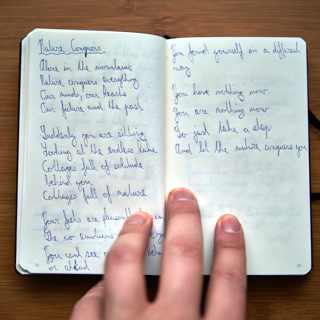 Nature Conquers
Alone in the mountains
Nature conquers everything
Our minds, our hearts
Our future and the past
Suddenly you are sitting
Looking at the endless lake
Cottages full of solitude
behind you
Cottages full of nature
Your paths are
The no emotions
You can't see
or ahead
You found yourself in a different
way
You have nothing now
You are nothing now
So just take a step
And let the nature conquers you